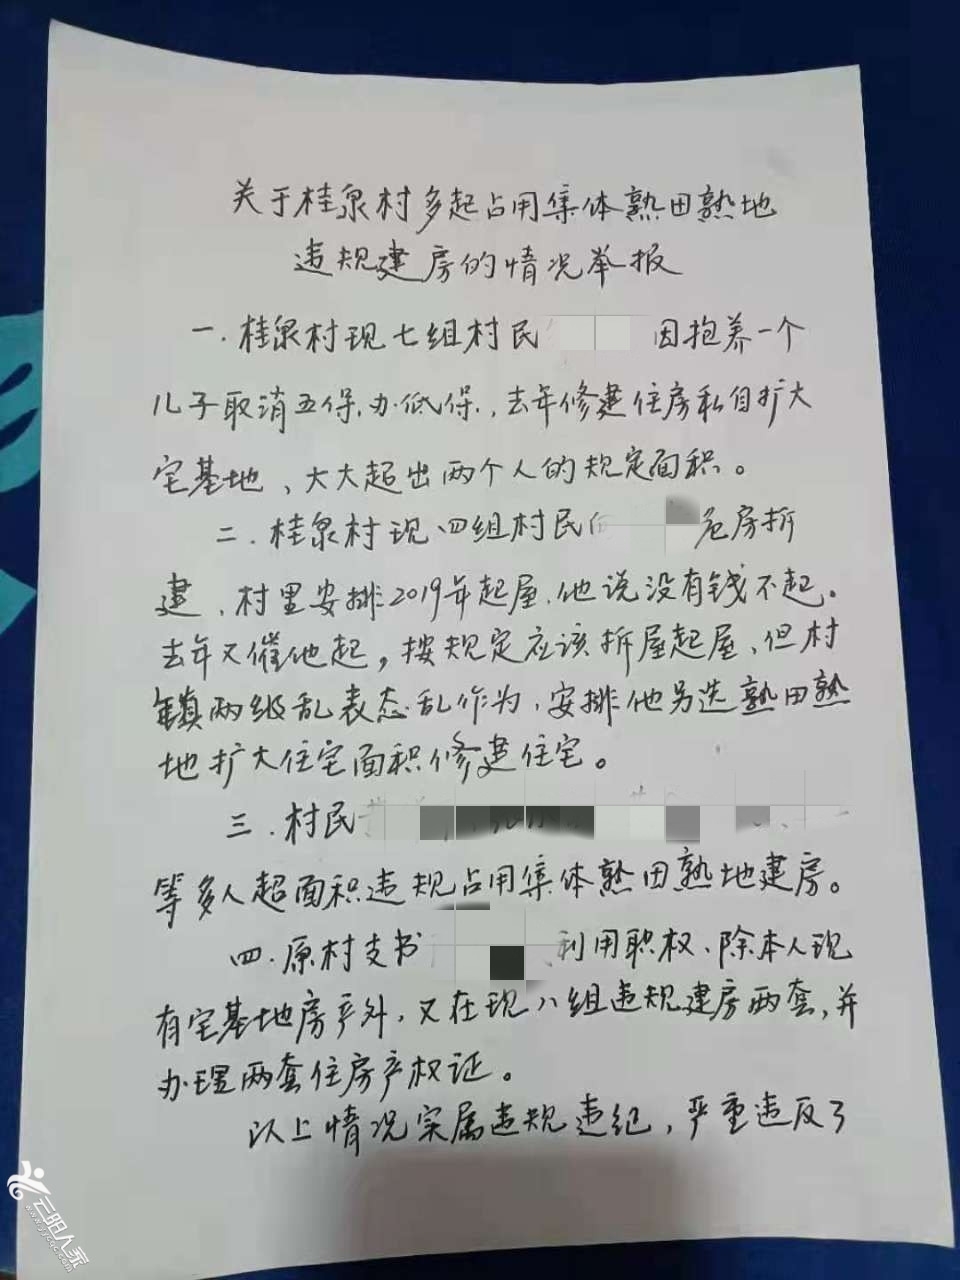 关于桂泉村多起占用集体熟田熟地
违规建房的情况举报
一.桂泉村现七组村民 因抱养一个
儿子取消五保.办低保.,去年修建住房私自扩大
宅基地、大大超出两个人的规定面积。
二.桂泉村现四组村民 危房拆
建、村里安排2019年起屋.他说没有钱不起。
去年又催他起,按规定应该拆屋起屋、但村
镇两级乱表态.乱作为、安排他另选熟田熟
地扩大住宅面积修建住宅。
三.村民
等多人超面积违规占用集体熟田熟地建房。
四.原村支书 利用职权、除本人现
有宅基地房产外,又在现八组违规建房两套,并
办理两套住房产权证。
以上情况实属违规违纪,严重违反了
云阳人家
www.yycqc.com